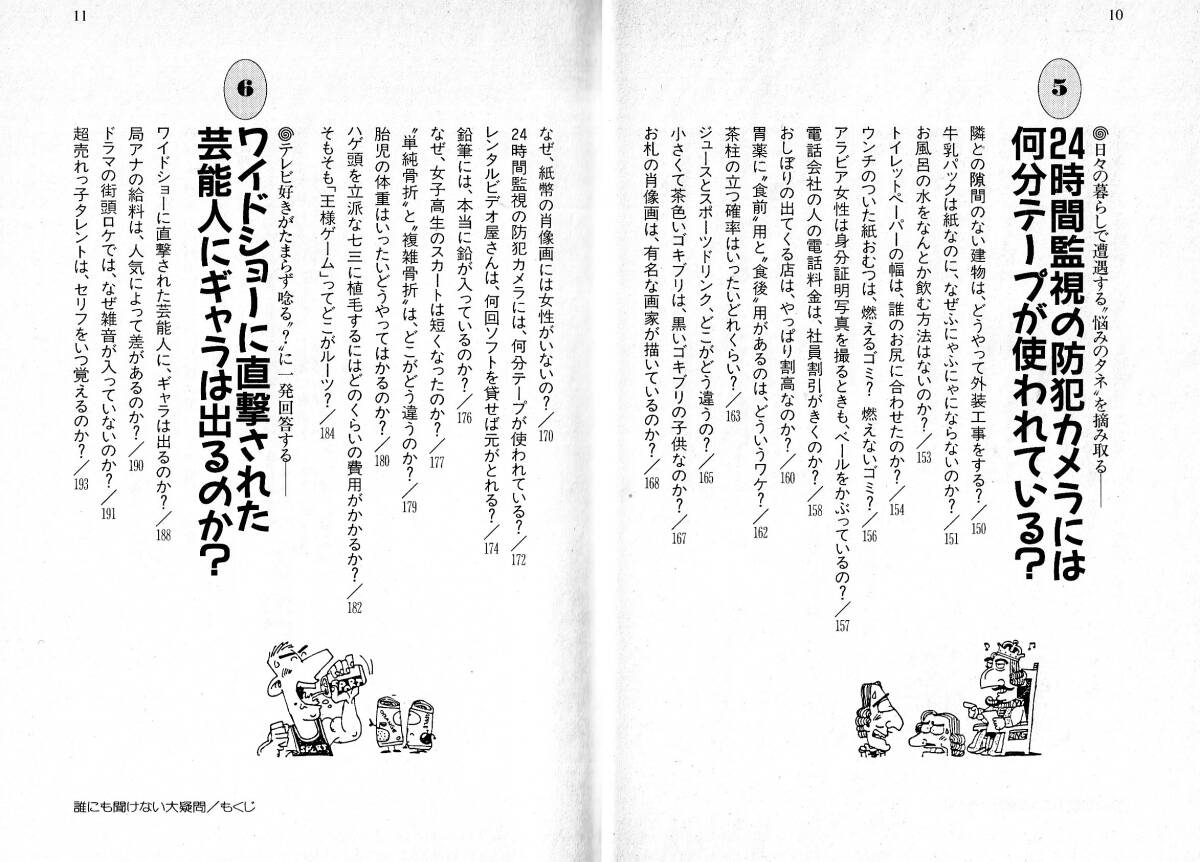 10
5
24時間監視の防犯カメラには
何分テープが使われている?
◎日々の暮らしで遭遇する〝悩みのタネ〟を摘み取る――
隣との隙間のない建物は、どうやって外装工事をする?/150
牛乳パックは紙なのに、なぜふにゃふにゃにならないのか?/151
お風呂の水をなんとか飲む方法はないのか?/153
トイレットペーパーの幅は、誰のお尻に合わせたのか?/154
ウンチのついた紙おむつは、燃えるゴミ? 燃えないゴミ?/156
アラビア女性は身分証明写真を撮るときも、ベールをかぶっているの?/157
電話会社の人の電話料金は、社員割引がきくのか?/158
おしぼりの出てくる店は、やっぱり割高なのか?/160
胃薬に〝食前〟用と〝食後〟用があるのは、どういうワケ?/162
茶柱の立つ確率はいったいどれくらい?/163
ジュースとスポーツドリンク、どこがどう違うの?/165
小さくて茶色いゴキブリは、黒いゴキブリの子供なのか?/167
お札の肖像画は、有名な画家が描いているのか?/168
11
なぜ、紙幣の肖像画には女性がいないの?/170
24時間監視の防犯カメラには、何分テープが使われている?/172
レンタルビデオ屋さんは、何回ソフトを貸せば元がとれる?/174
鉛筆には、本当に鉛が入っているのか?/176
なぜ、女子高生のスカートは短くなったのか?/177
〝単純骨折〟と〝複雑骨折〟は、どこがどう違うのか?/179
胎児の体重はいったいどうやってはかるのか?/180
ハゲ頭を立派な七三に植毛するにはどのくらいの費用がかかるか?/182
そもそも「王様ゲーム」ってどこがルーツ?/184
6
ワイドショーに直撃された
芸能人にギャラは出るのか?
◎テレビ好きがたまらず唸る〝?〟に一発回答する――
ワイドショーに直撃された芸能人に、ギャラは出るのか?/188
局アナの給料は、人気によって差があるのか?/190
ドラマの街頭ロケでは、なぜ雑音が入っていないのか?/191
超売れっ子タレントは、セリフをいつ覚えるのか?/193
誰にも聞けない大疑問/もくじ